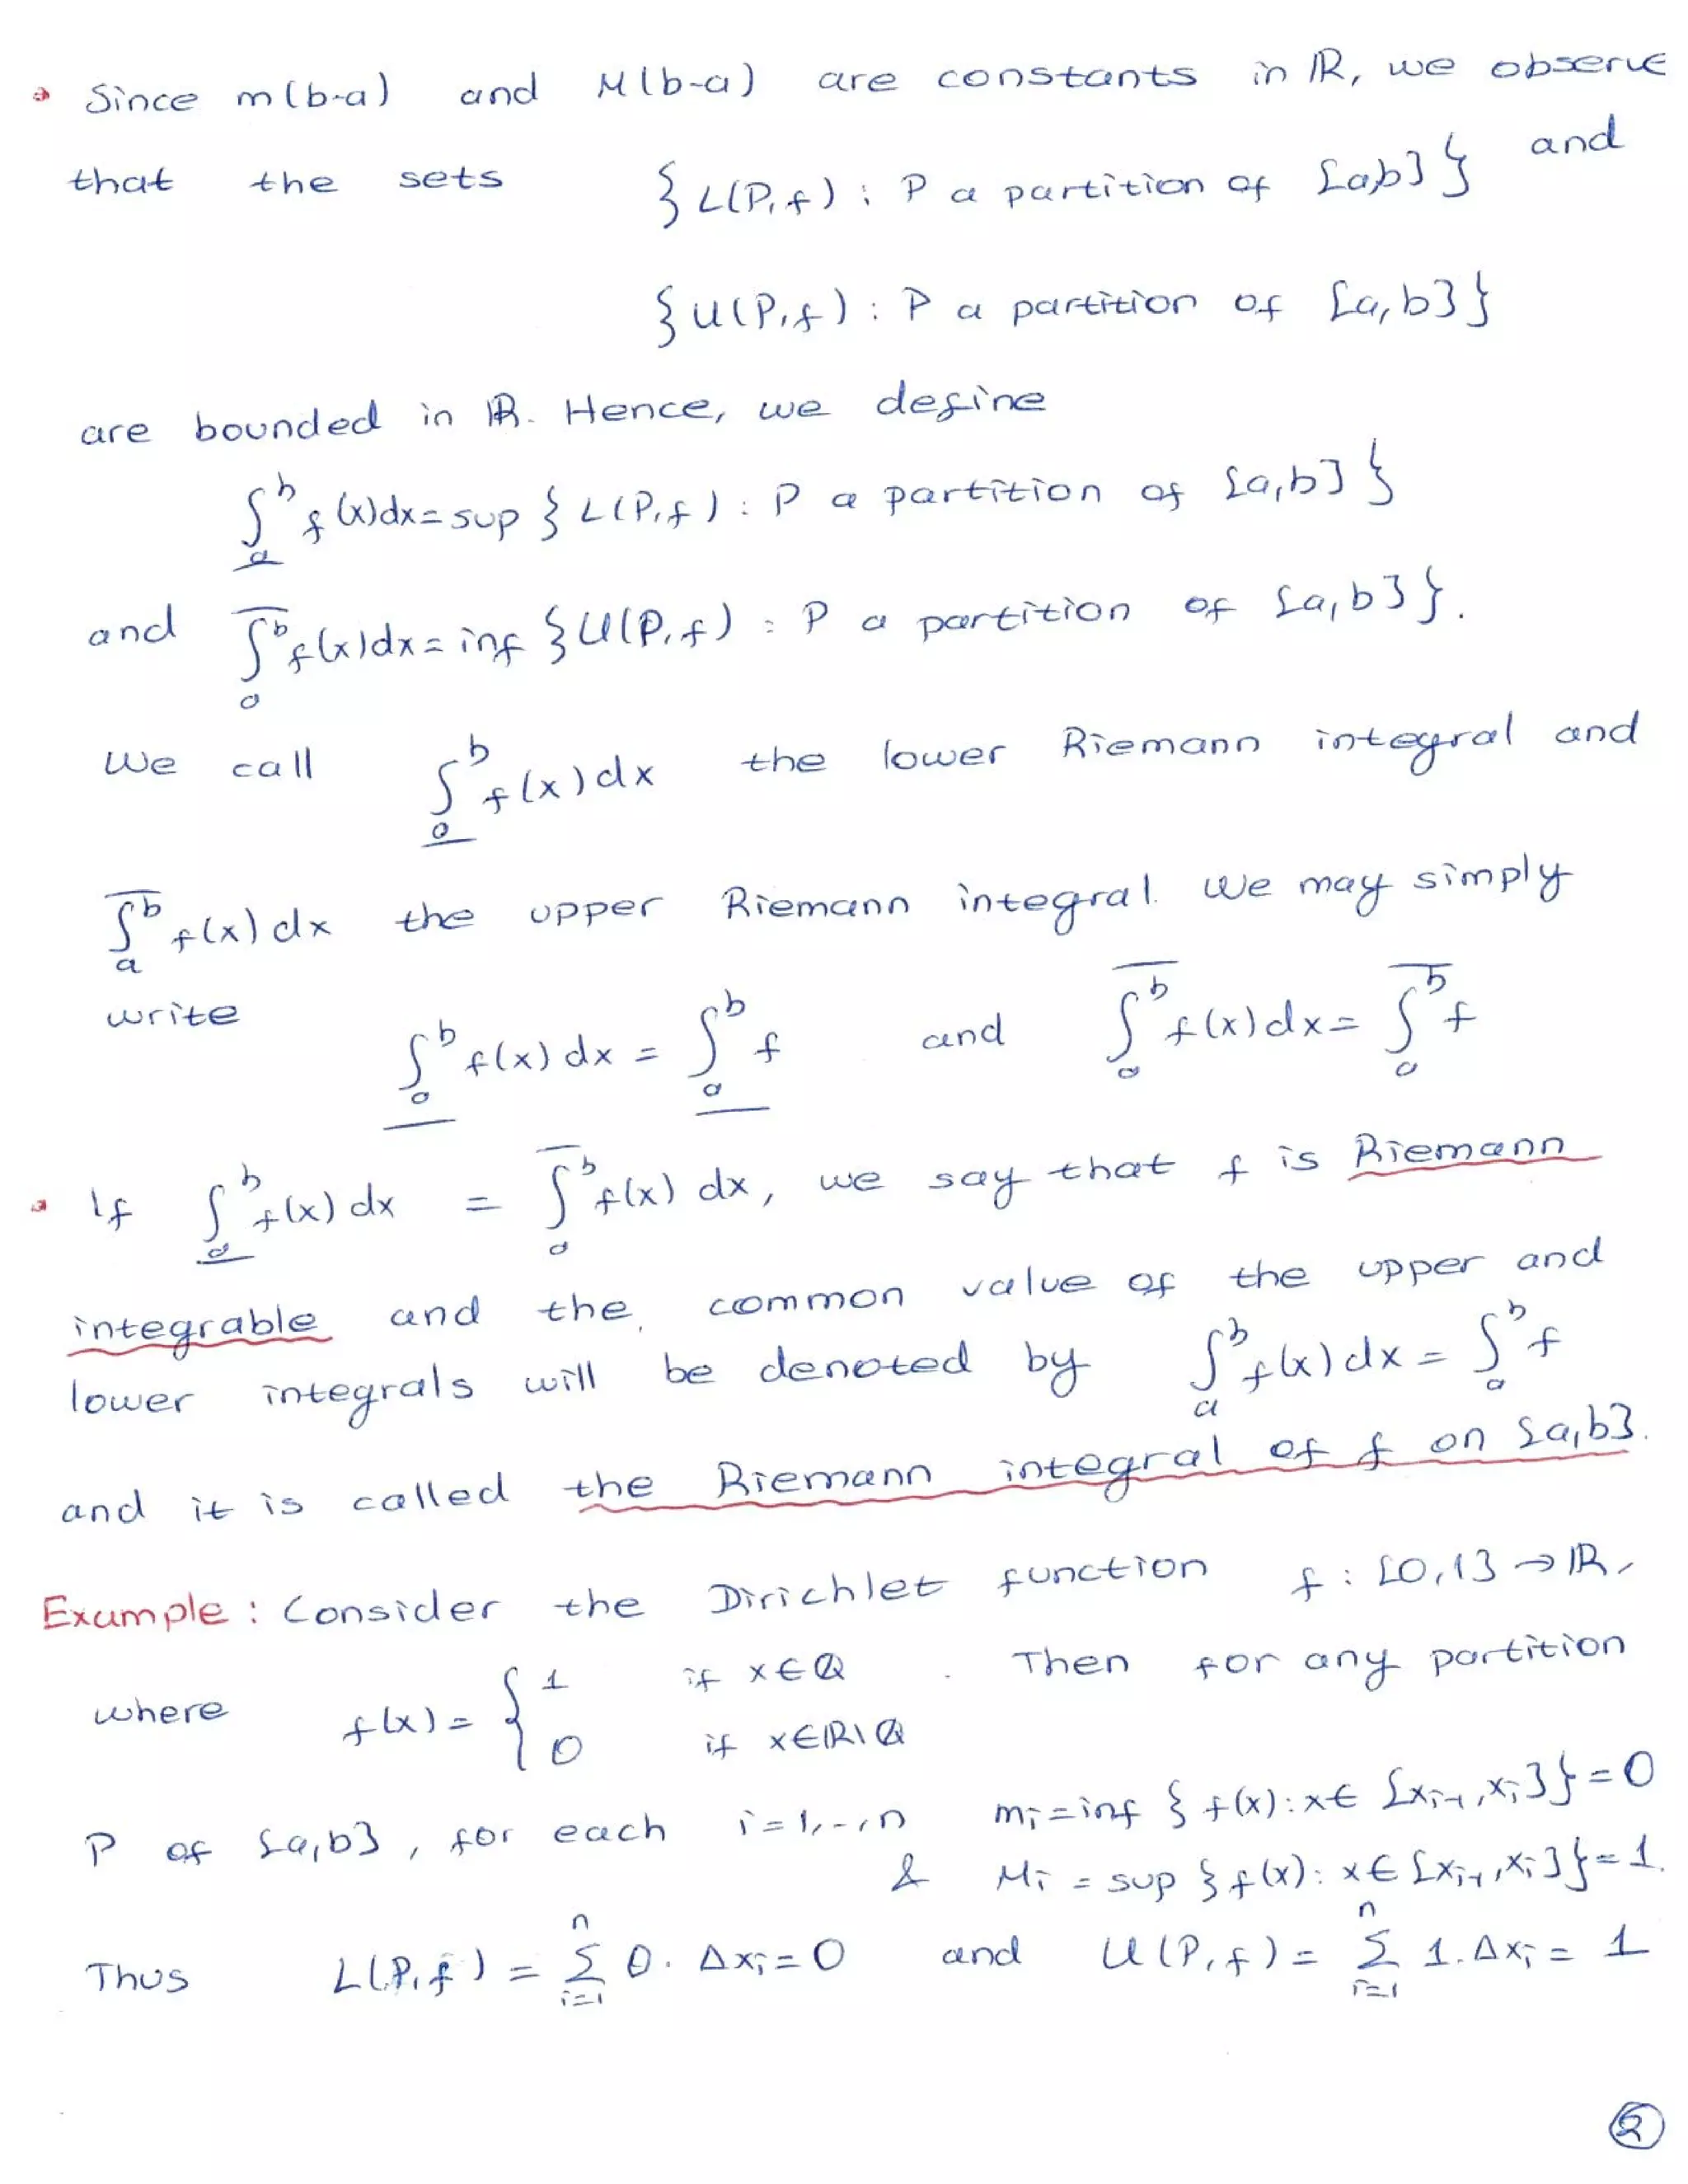 Since m(b-a) and M(b-a) are constants in ℝ, we observe
that the sets {L(P,f) : P a partition of [a,b]} and
{U(P,f) : P a partition of [a,b]}
are bounded in ℝ. Hence, we define
∫̲ₐᵇ f(x)dx = sup {L(P,f) : P a partition of [a,b]}
and ∫̅ₐᵇ f(x)dx = inf {U(P,f) : P a partition of [a,b]}.
We call ∫̲ₐᵇ f(x)dx the lower Riemann integral and
∫̅ₐᵇ f(x)dx the upper Riemann integral. We may simply
write ∫̲ₐᵇ f(x)dx = ∫̲ₐᵇ f and ∫̅ₐᵇ f(x)dx = ∫̅ₐᵇ f
If ∫̲ₐᵇ f(x)dx = ∫̅ₐᵇ f(x)dx, we say that f is Riemann
integrable and the common value of the upper and
lower integrals will be denoted by ∫ₐᵇ f(x)dx = ∫ₐᵇ f
and it is called the Riemann integral of f on [a,b].
Example: Consider the Dirichlet function f : [0,1] → ℝ,
where f(x) = { 1 if x∈ℚ . Then for any partition
0 if x∈ℝ\ℚ
P of [a,b], for each i=1,..,n mᵢ = inf {f(x) : x∈ [xᵢ₋₁, xᵢ]} = 0
& Mᵢ = sup {f(x) : x∈ [xᵢ₋₁, xᵢ]} = 1.
Thus L(P,f) = Σᵢ₌₁ⁿ 0. Δxᵢ = 0 and U(P,f) = Σᵢ₌₁ⁿ 1. Δxᵢ = 1
2